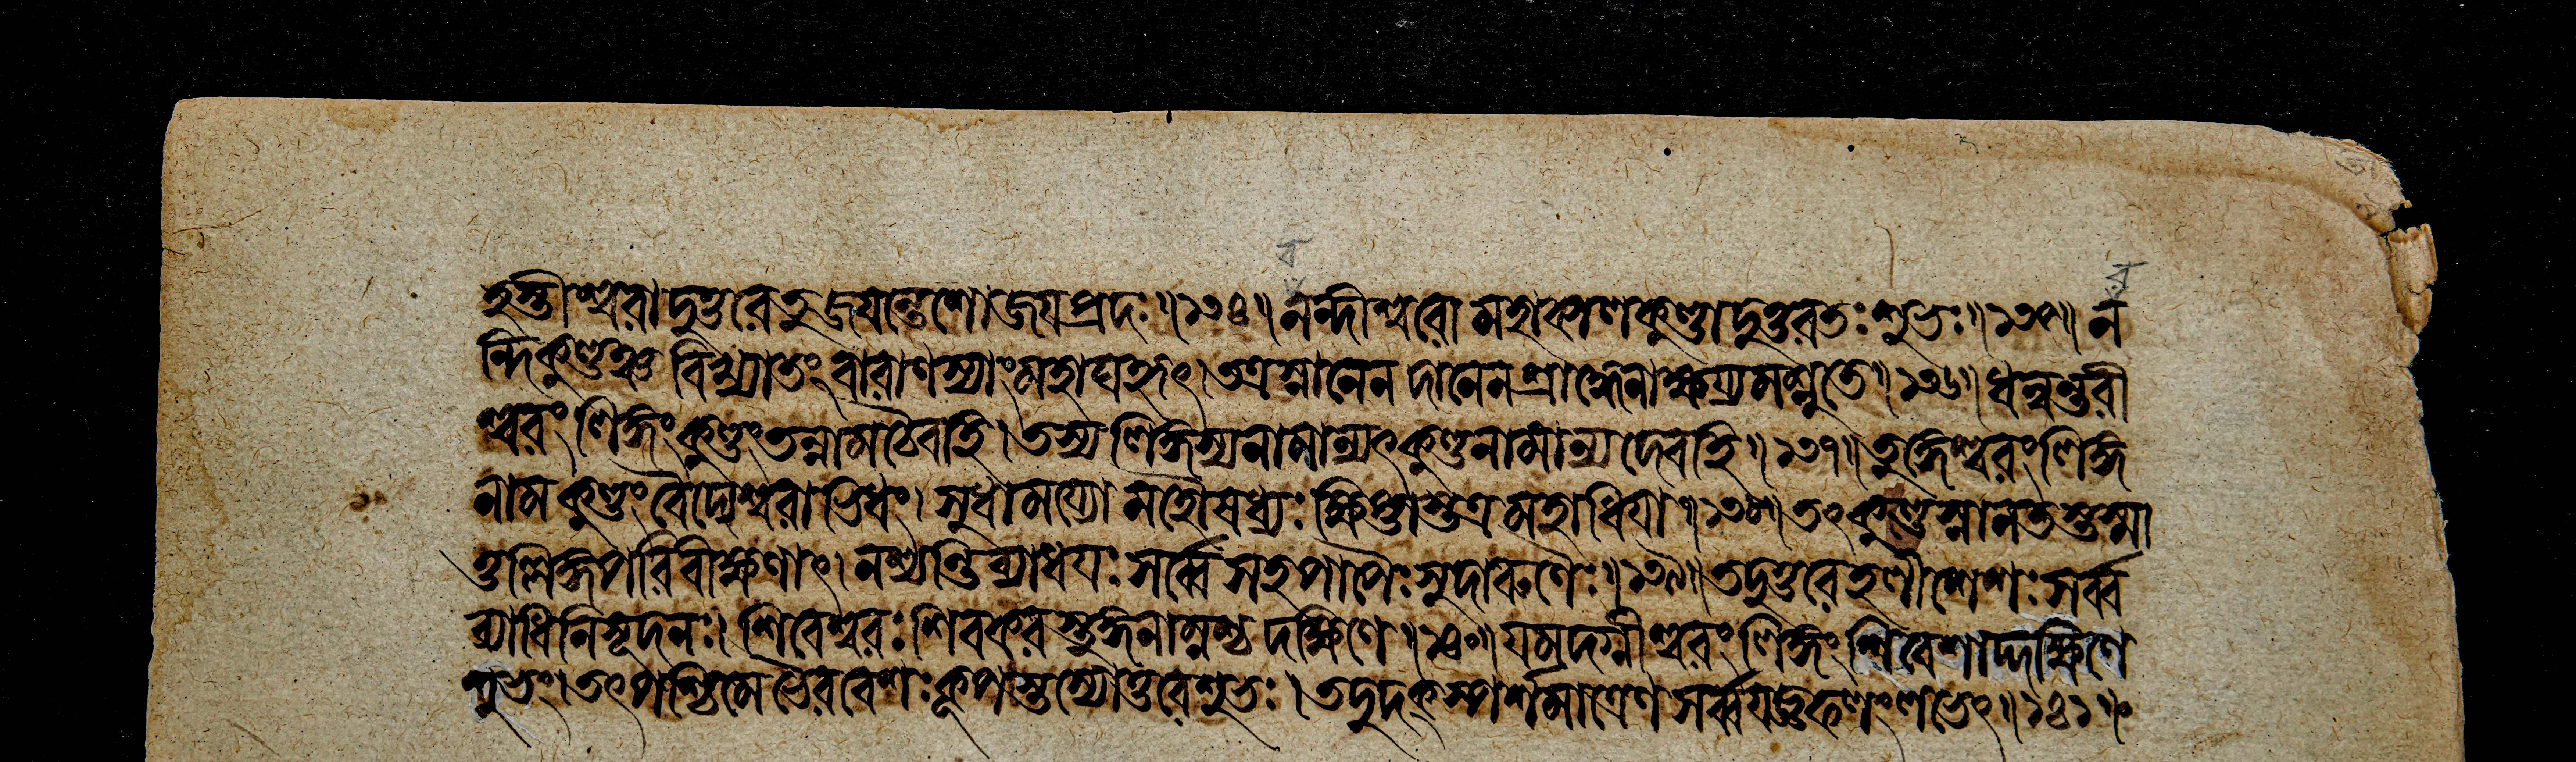 ব
ব
হস্তীশ্বরাদুত্তরে তু জয়ন্তেশো জয়প্রদঃ॥১৩৪॥ নন্দীশ্বরো মহাকালকুণ্ডাদুত্তরতঃ শুভঃ॥১৩৫॥ ন
ন্দিকুণ্ডঞ্চ বিখ্যাতং বারাণস্যাং মহাঘহৃৎ। তত্র স্নানেন দানেন শ্রাদ্ধেনাক্ষয়্যমশ্নুতে॥১৩৬॥ ধন্বন্তরী
শ্বরং লিঙ্গং কুণ্ডং তন্নাম চৈব হি। তস্য লিঙ্গস্য নামান্যৎ কুণ্ডনামান্যদেব হি॥১৩৭॥ তুঙ্গেশ্বরং লিঙ্গ
নাম কুণ্ডং বৈদ্যেশ্বরাভিধং। সুধাময্যো মহৌষধ্যঃ ক্ষিপ্তাস্তত্র মহাধিয়া॥১৩৮॥ তৎকুণ্ডস্নানতস্তস্মা
ত্তল্লিঙ্গপরিবীক্ষণাৎ। নশ্যন্তি ব্যাধয়ঃ সর্ব্বে সহ পাপৈঃ সুদারুণৈঃ॥১৩৯॥ তদুত্তরে হলীশেশঃ সর্ব্ব
ব্যাধিনিসূদনঃ। শিবেশ্বরঃ শিবকরস্তুঙ্গনাম্নশ্চ দক্ষিণে॥১৪০॥ যমদগ্নীশ্বরং লিঙ্গং শিবেশাদ্দক্ষিণে
শুভং। তৎপশ্চিমে ভৈরবেশঃ কূপস্তস্যোত্তরে শুভঃ। তদুদকস্পর্শমাত্রেণ সর্ব্বযজ্ঞফলং লভেৎ॥১৪১॥